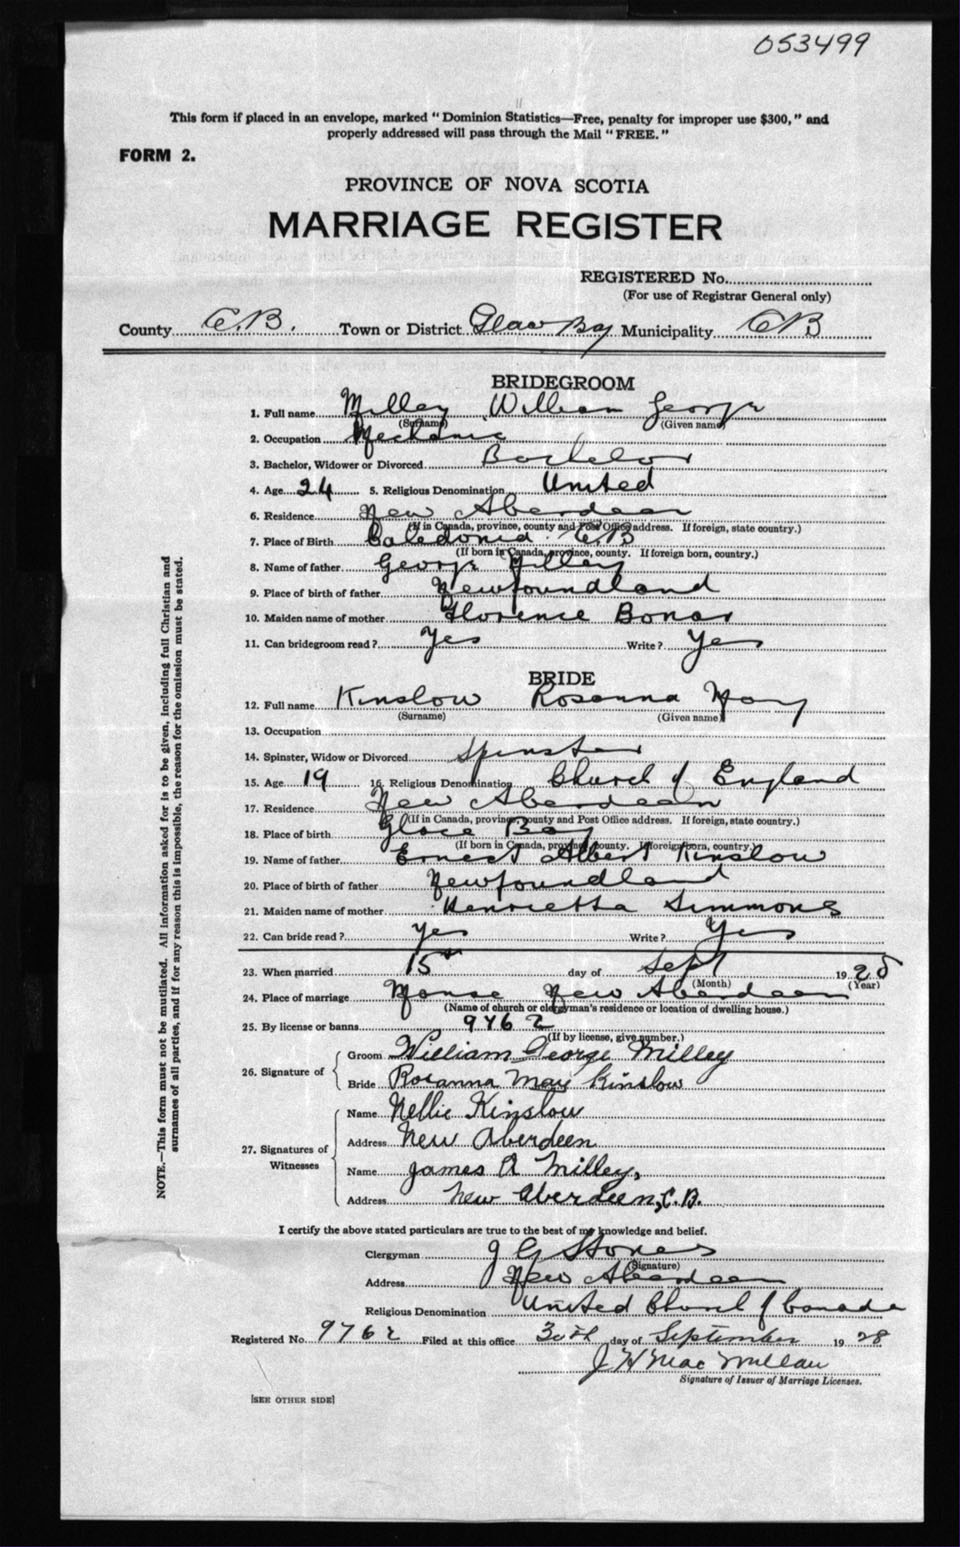 053499
This form if placed in an envelope, marked "Dominion Statistics—Free, penalty for improper use $300," and
properly addressed will pass through the Mail "FREE."
FORM 2.
PROVINCE OF NOVA SCOTIA
MARRIAGE REGISTER
REGISTERED No.
(For use of Registrar General only)
County C.B. Town or District Glace Bay Municipality CB
BRIDEGROOM
1. Full name Milley William George
(Surname) (Given name)
2. Occupation Mechanic
3. Bachelor, Widower or Divorced Bachelor
4. Age 24 5. Religious Denomination United
6. Residence New Aberdeen
(If in Canada, province, county and Post Office address. If foreign, state country.)
7. Place of Birth Caledonia CB
(If born in Canada, province, county. If foreign born, country.)
8. Name of father George Milley
9. Place of birth of father Newfoundland
10. Maiden name of mother Florence Bonar
11. Can bridegroom read? Yes Write? Yes
BRIDE
12. Full name Kinslow Rosanna May
(Surname) (Given name)
13. Occupation
14. Spinster, Widow or Divorced Spinster
15. Age 19 16. Religious Denomination Church of England
17. Residence New Aberdeen
(If in Canada, province, county and Post Office address. If foreign, state country.)
18. Place of birth Glace Bay
(If born in Canada, province, county. If foreign born, country.)
19. Name of father Ernest Albert Kinslow
20. Place of birth of father Newfoundland
21. Maiden name of mother Henrietta Simmons
22. Can bride read? Yes Write? Yes
23. When married 15th day of Sept 1928
(Month) (Year)
24. Place of marriage Manse New Aberdeen
(Name of church or clergyman's residence or location of dwelling house.)
25. By license or banns 9762
(If by license, give number.)
26. Signature of
Groom William George Milley
Bride Rosanna May Kinslow
27. Signatures of Witnesses
Name Nellie Kinslow
Address New Aberdeen
Name James A Milley,
Address New Aberdeen, C.B.
I certify the above stated particulars are true to the best of my knowledge and belief.
Clergyman J G Stones
(Signature)
Address New Aberdeen
Religious Denomination United Church of Canada
Registered No. 9762 Filed at this office 30th day of September 1928
J H MacMillan
Signature of Issuer of Marriage Licenses.
[SEE OTHER SIDE]
NOTE.—This form must not be mutilated. All information asked for is to be given, including full Christian and
surnames of all parties, and if for any reason this is impossible, the reason for the omission must be stated.